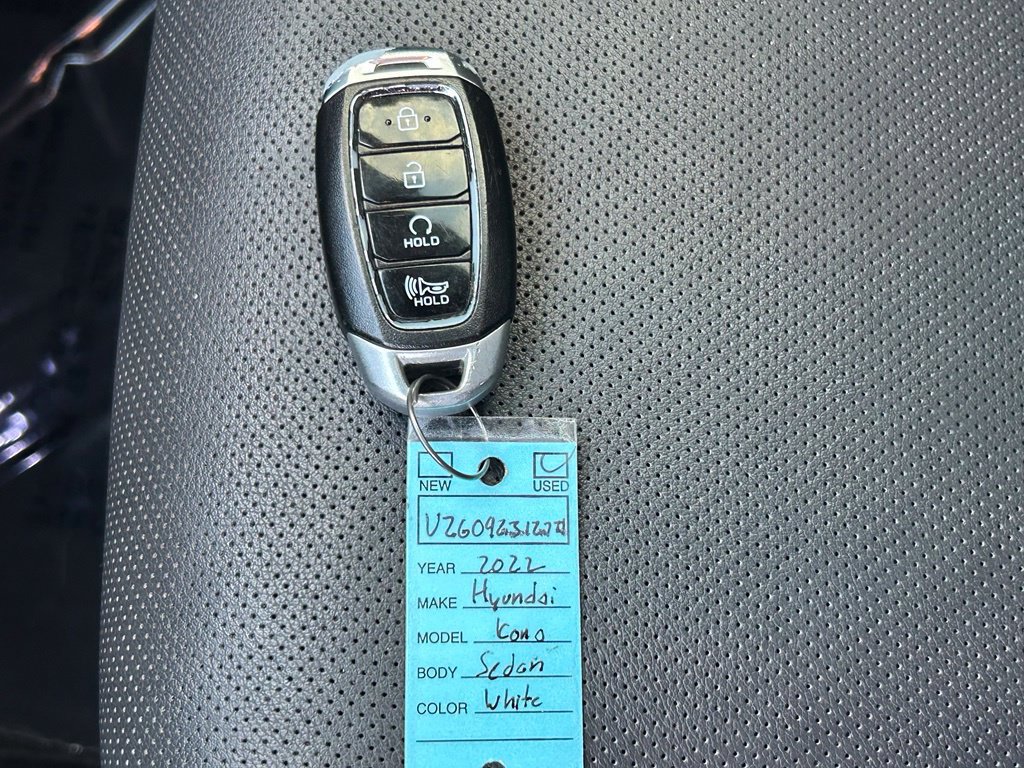 HOLD
HOLD
NEW USED
YEAR 2022
MAKE Hyundai
MODEL Kona
BODY Sedan
COLOR White